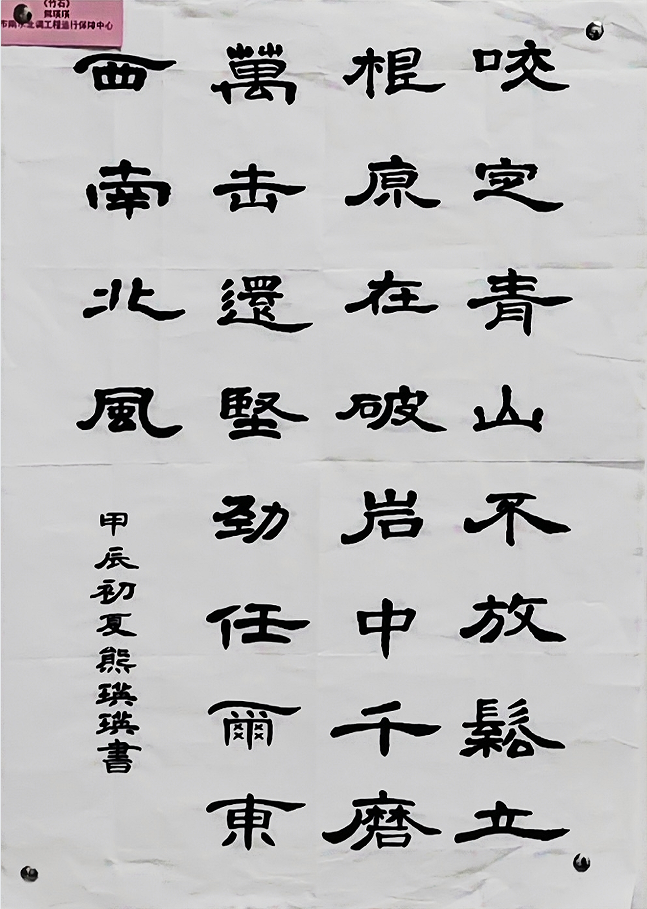 《竹石》
熊瑛瑛
市南水北调工程运行保障中心
咬定青山不放鬆立
根原在破岩中千磨
萬击還堅劲任爾東
西南北風
甲辰初夏熊瑛瑛書